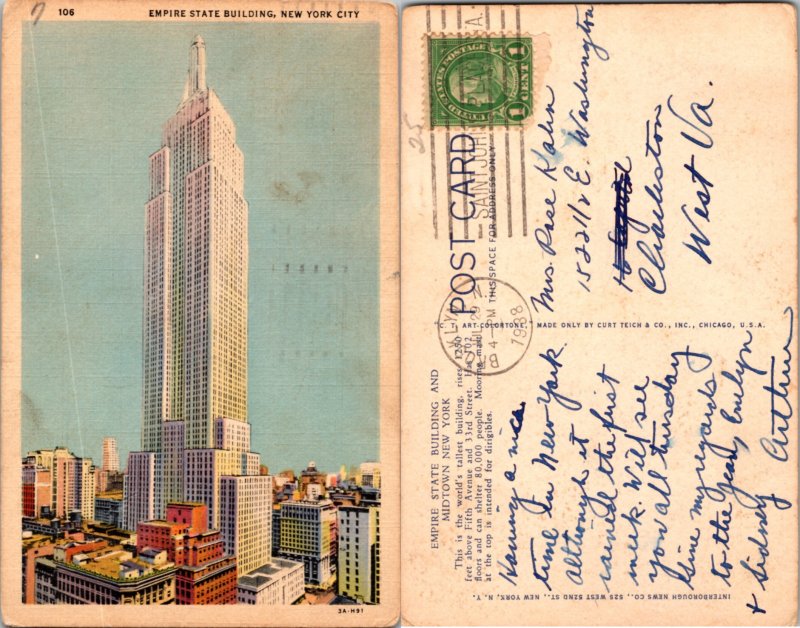 7
106
EMPIRE STATE BUILDING, NEW YORK CITY
3A-H91
25
UNITED STATES POSTAGE
1 CENT 1
SAINT JOH
BKLYN
JUL 29
4-PM
1938
POST CARD
THIS SPACE FOR ADDRESS ONLY
Mrs. Rose Kahn
1522 1/2 E. Washington
Charleston
West Va.
C. T. ART-COLORTONE, MADE ONLY BY CURT TEICH & CO., INC., CHICAGO, U.S.A.
EMPIRE STATE BUILDING AND
MIDTOWN NEW YORK
This is the world's tallest building, rises 1250
feet above Fifth Avenue and 33rd Street. Has 102
floors and can shelter 80,000 people. Mooring mast
at the top is intended for dirigibles.
Having a nice
time in New York.
although it
rained the first
week. Will see
you all tuesday
Give my regards
to the
Evelyn
& Sidney
Arthur
INTERBOROUGH NEWS CO., 525 WEST 52ND ST., NEW YORK, N. Y.